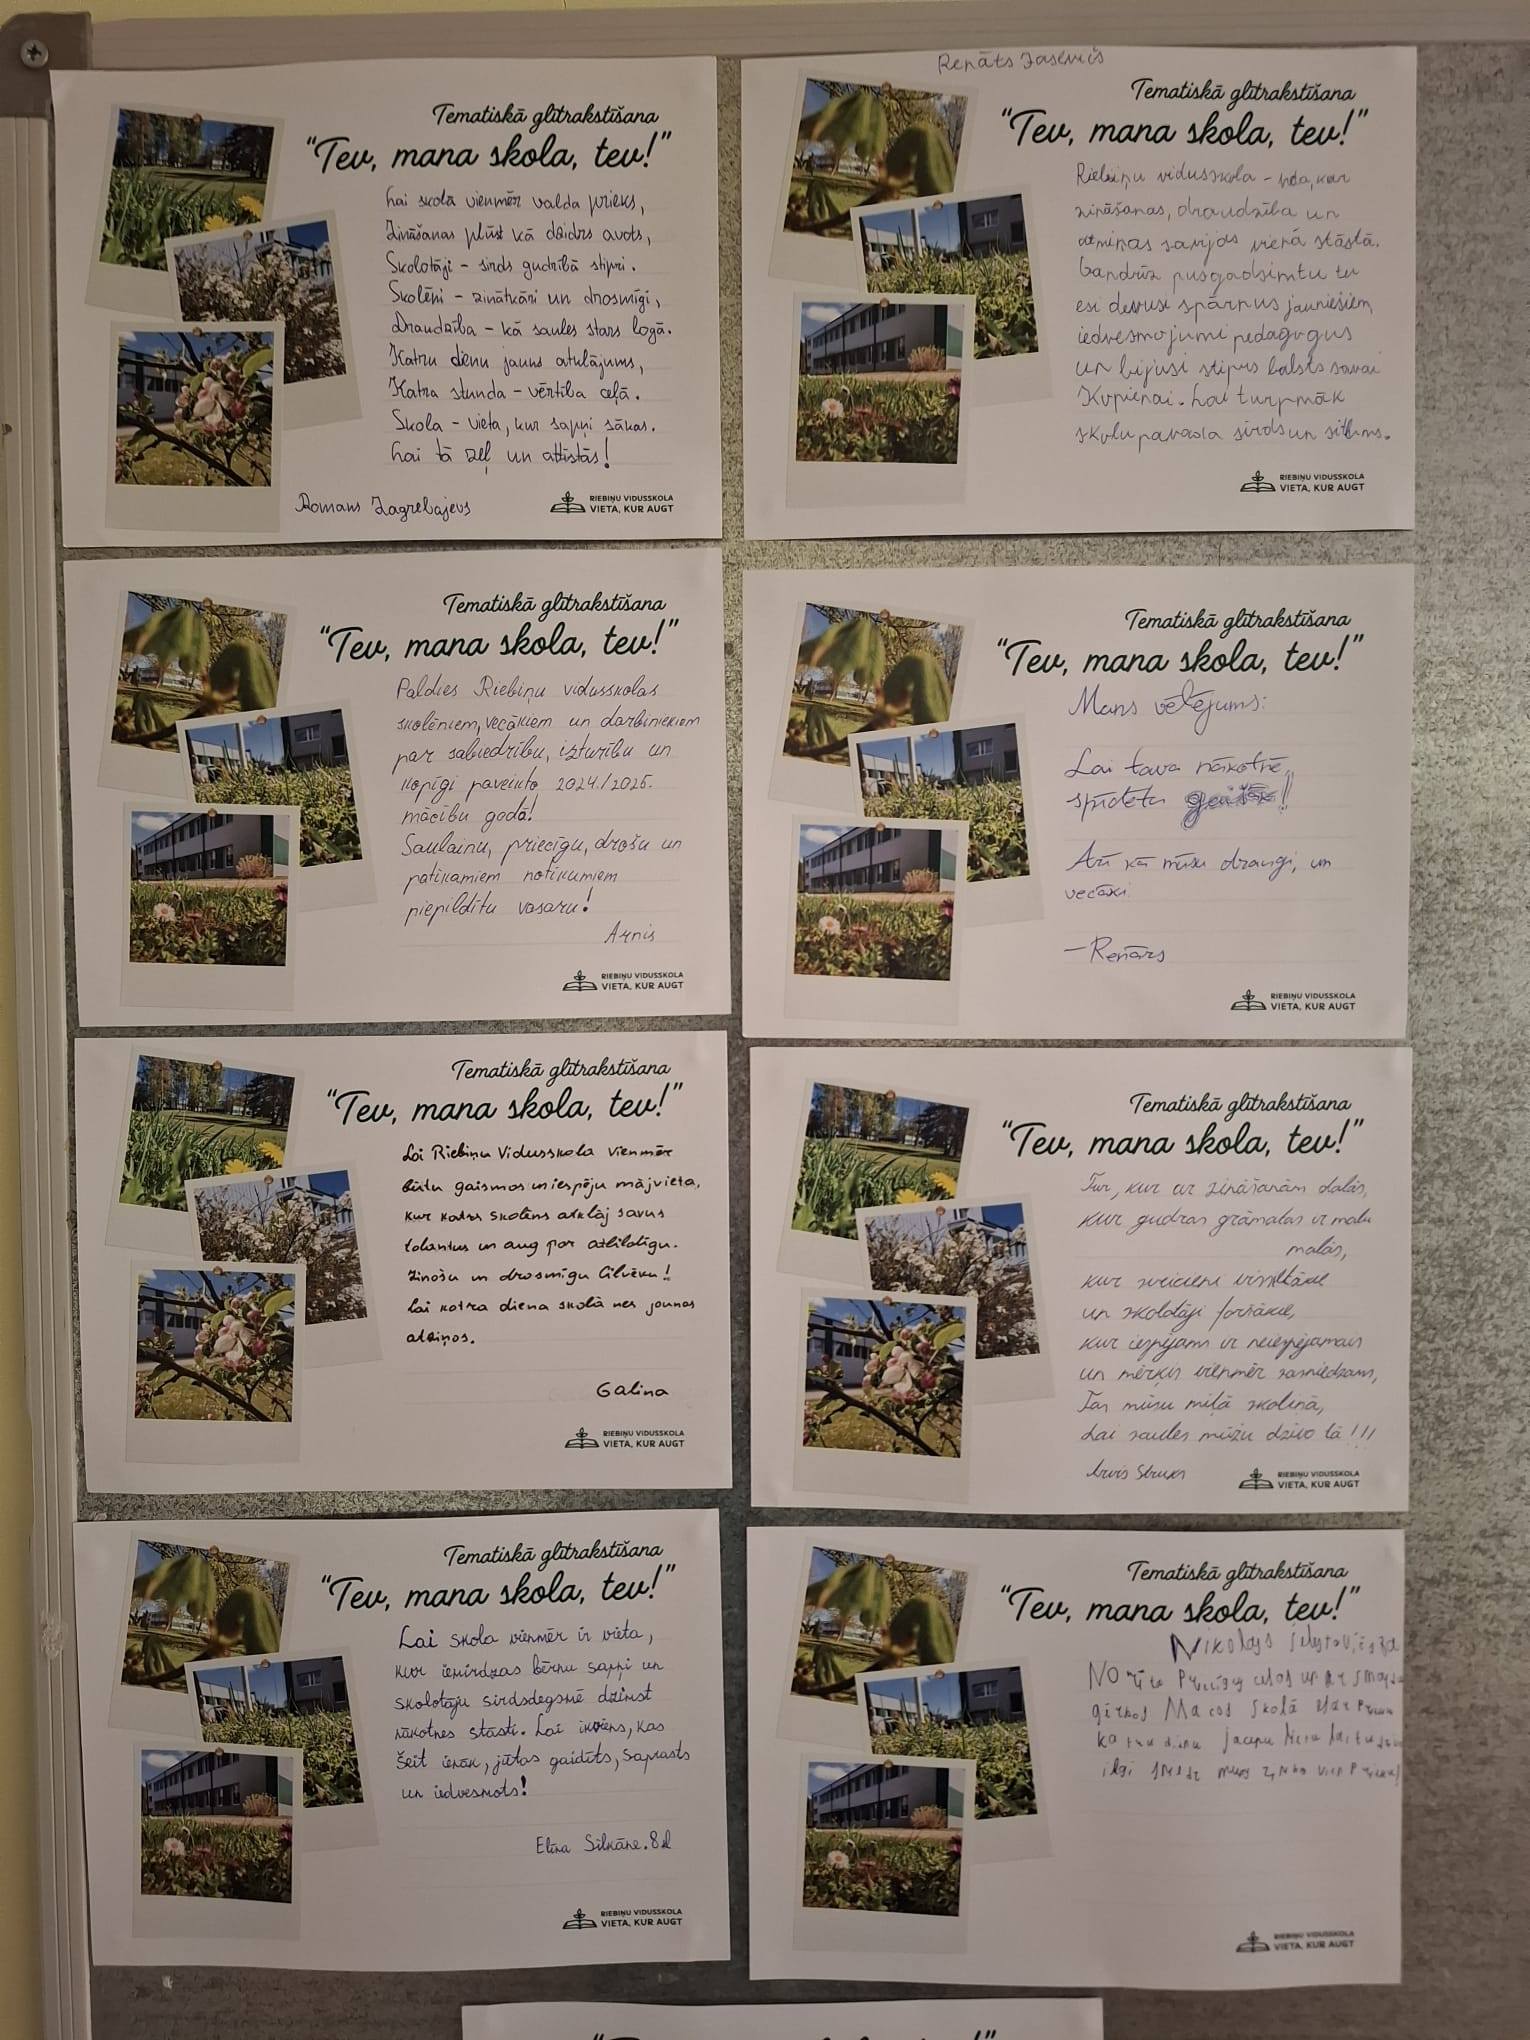 Tematiskā glītrakstīšana
"Tev, mana skola, tev!"
Lai skolā vienmēr valda prieks,
Zināšanas plūst kā dzidrs avots,
Skolotāji – sirds gudrībā stipri.
Skolēni – zinātkāri un drosmīgi,
Draudzība – kā saules stars logā.
Katru dienu jauns atklājums,
Katra stunda – vērtība ceļā.
Skola – vieta, kur sapņi sākas.
Lai tā zeļ un attīstās!
Romans Zagrebajevs
RIEBIŅU VIDUSSKOLA
VIETA, KUR AUGT
Renāts
Tematiskā glītrakstīšana
"Tev, mana skola, tev!"
Riebiņu vidusskola – kur
zināšanas, draudzība un
atmiņas savijas vienā stāstā.
Gandrīz pusgadsimtu tu
esi devusi spārnus jauniešiem,
iedvesmojumi pedagogus
un bijusi stiprs balsts savai
Kopienai. Lai turpmāk
skolu pavada sirds un siltums.
RIEBIŅU VIDUSSKOLA
VIETA, KUR AUGT
Tematiskā glītrakstīšana
"Tev, mana skola, tev!"
Paldies Riebiņu vidusskolas
skolēniem, vecākiem un darbiniekiem
par sabiedrību, izturību un
kopīgi paveikto 2024./2025.
mācību gadā!
Saulainu, priecīgu, drošu un
patīkamiem notikumiem
piepildītu vasaru!
Arnis
RIEBIŅU VIDUSSKOLA
VIETA, KUR AUGT
Tematiskā glītrakstīšana
"Tev, mana skola, tev!"
Mans vēlējums:
Lai tava nākotne,
spīdētu !!
Arī kā mūsu draugi, un
vecāki.
–Renārs
RIEBIŅU VIDUSSKOLA
VIETA, KUR AUGT
Tematiskā glītrakstīšana
"Tev, mana skola, tev!"
Lai Riebiņu Vidusskola Vienmēr
būtu gaismas un iespēju mājvieta,
kur katrs skolēns atklāj savus
talantus un aug par atbildīgu.
Zinošu un drosmīgu Cilvēku!
Lai katra diena skolā nes jaunas
atziņas.
Galina
RIEBIŅU VIDUSSKOLA
VIETA, KUR AUGT
Tematiskā glītrakstīšana
"Tev, mana skola, tev!"
Tur, kur ar zināšanām dalās,
kur gudras grāmatas ir malu
malās,
kur sveicieni
un skolotāji foršākie,
kur iespējams ir neiespējamais
un mērķis vienmēr sasniedzams,
Tas mūsu mīļā skoliņā,
Lai saules mūžu dzīvo tā!!!
Arvis
RIEBIŅU VIDUSSKOLA
VIETA, KUR AUGT
Tematiskā glītrakstīšana
"Tev, mana skola, tev!"
Lai skola vienmēr ir vieta,
kur iemirdzas bērnu sapņi un
skolotāju sirdsdegsmē dzimst
nākotnes stāsti. Lai ikviens, kas
šeit ienāk, jūtas gaidīts, saprasts
un iedvesmots!
Elīna Silkāne. 8.kl
RIEBIŅU VIDUSSKOLA
VIETA, KUR AUGT
Tematiskā glītrakstīšana
"Tev, mana skola, tev!"
Nikolajs
No rīta un ar
skolā
katru dienu
ilgi
RIEBIŅU VIDUSSKOLA
VIETA, KUR AUGT